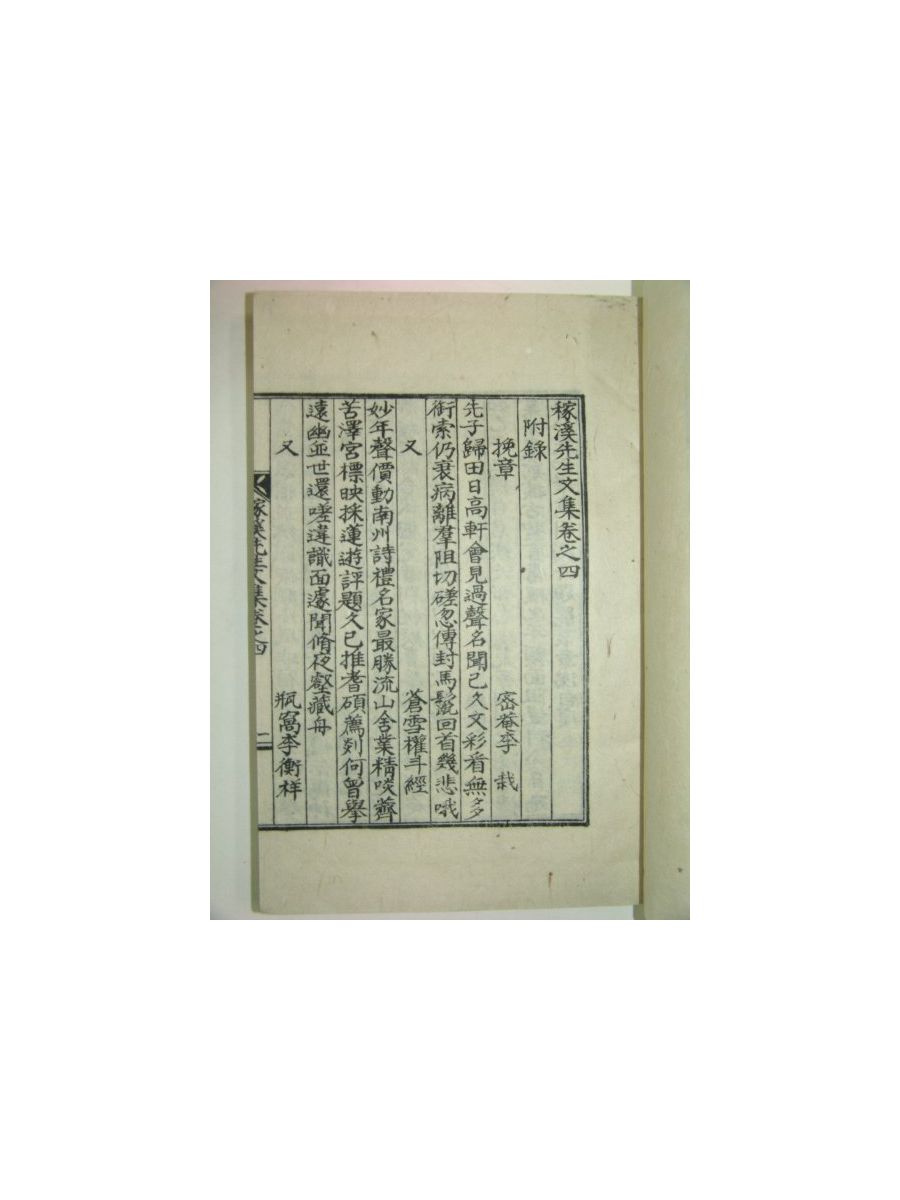 稼溪先生文集卷之四
附錄
挽章
密菴李 栽
先子歸田日高軒會見過聲名聞已久文彩看無多
銜索仍衰病離羣阻切磋忽傳封馬鬛回首幾悲哦
又
蒼雪權斗經
妙年聲價動南州詩禮名家最勝流山舍業精啖虀
苦澤宮標映採蓮遊評題久已推耆碩薦剡何曾擧
遠幽並世還嗟違識面遽聞脩夜壑藏舟
又
瓶窩李衡祥
稼溪先生文集卷之四
一